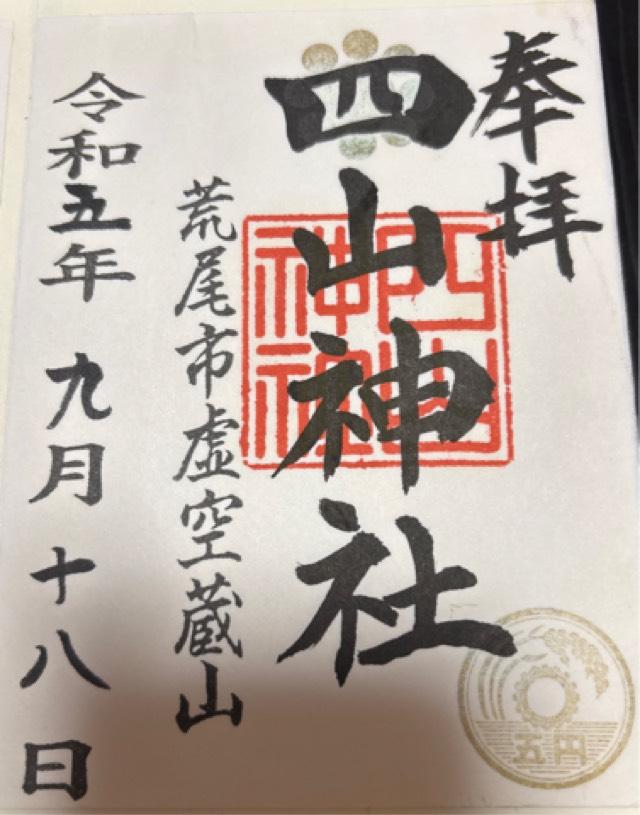 奉拝
四山神社
四山
神社
荒尾市虚空蔵山
令和五年九月十八日
五円